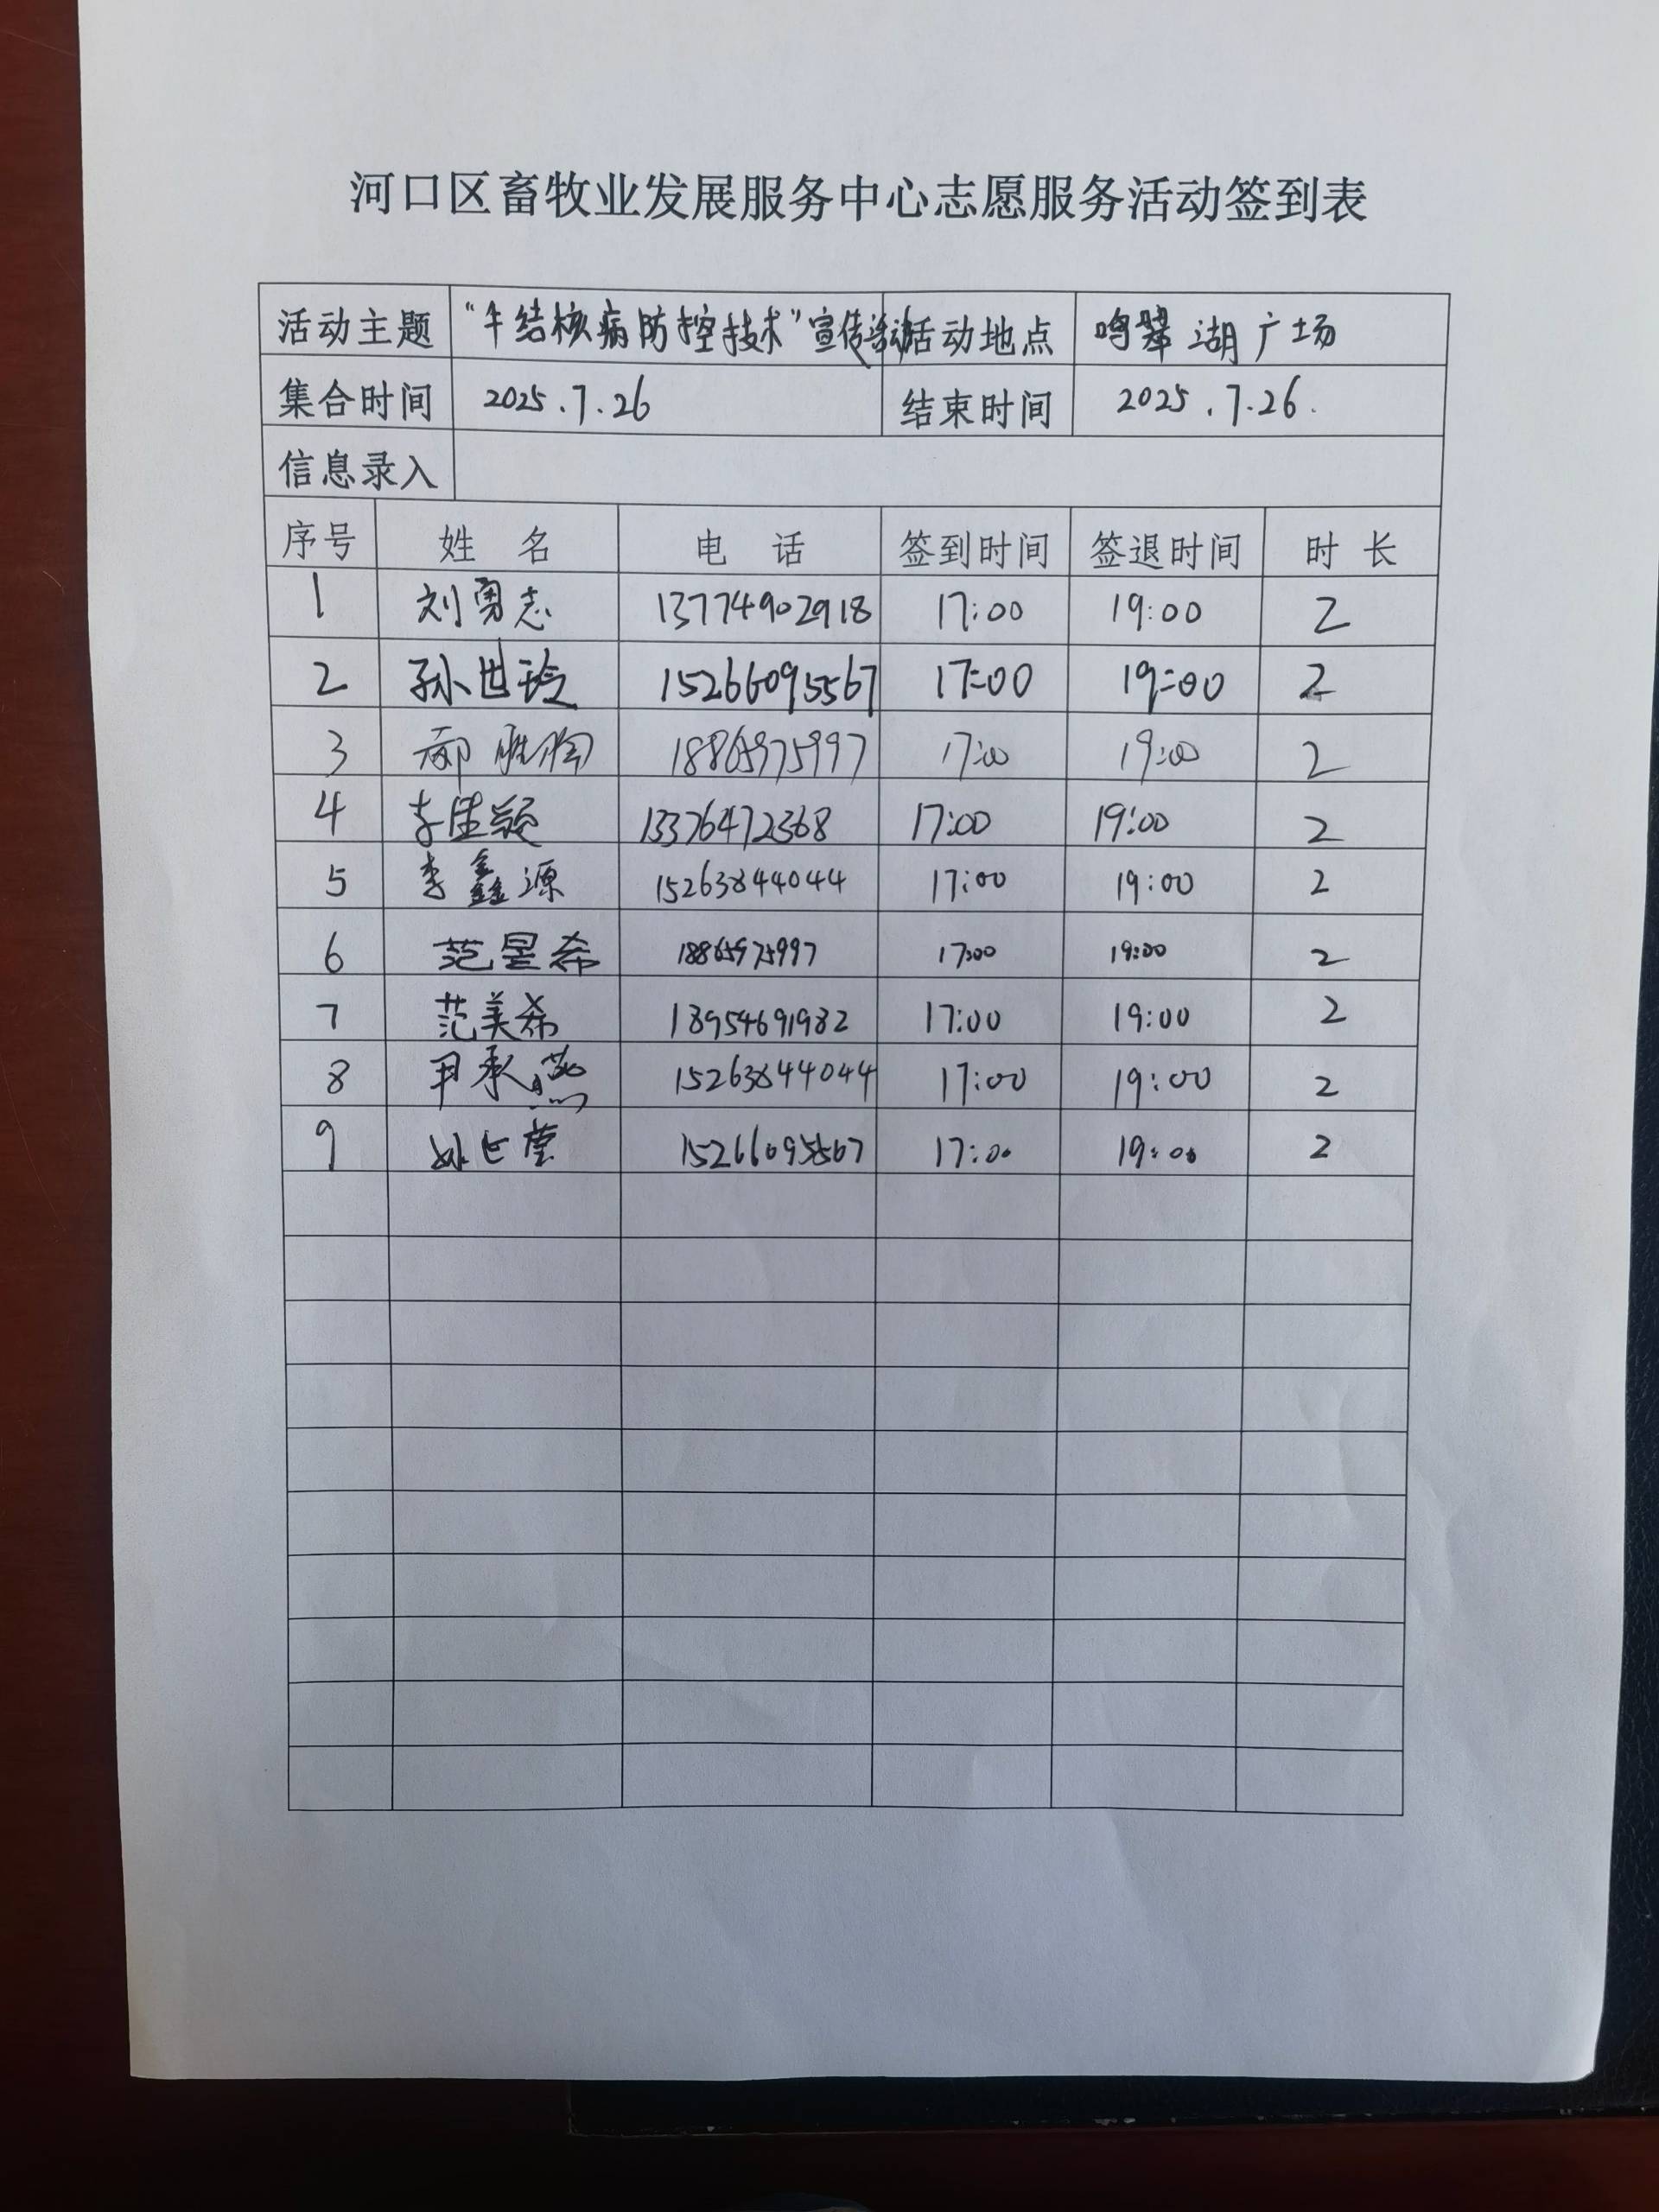 河口区畜牧业发展服务中心志愿服务活动签到表
活动主题 “牛结核病防控技术”宣传活动 活动地点 鸣翠湖广场
集合时间 2025.7.26 结束时间 2025.7.26.
信息录入
序号 姓名 电话 签到时间 签退时间 时长
1 刘勇志 13774902918 17:00 19:00 2
2 孙世玲 15266095567 17:00 19:00 2
3 18865975997 17:00 19:00 2
4 李佳颖 13376472368 17:00 19:00 2
5 李鑫源 15263844044 17:00 19:00 2
6 范昱希 18865975997 17:00 19:00 2
7 范美希 18954691982 17:00 19:00 2
8 尹承燕 15263844044 17:00 19:00 2
9 15266095567 17:00 19:00 2